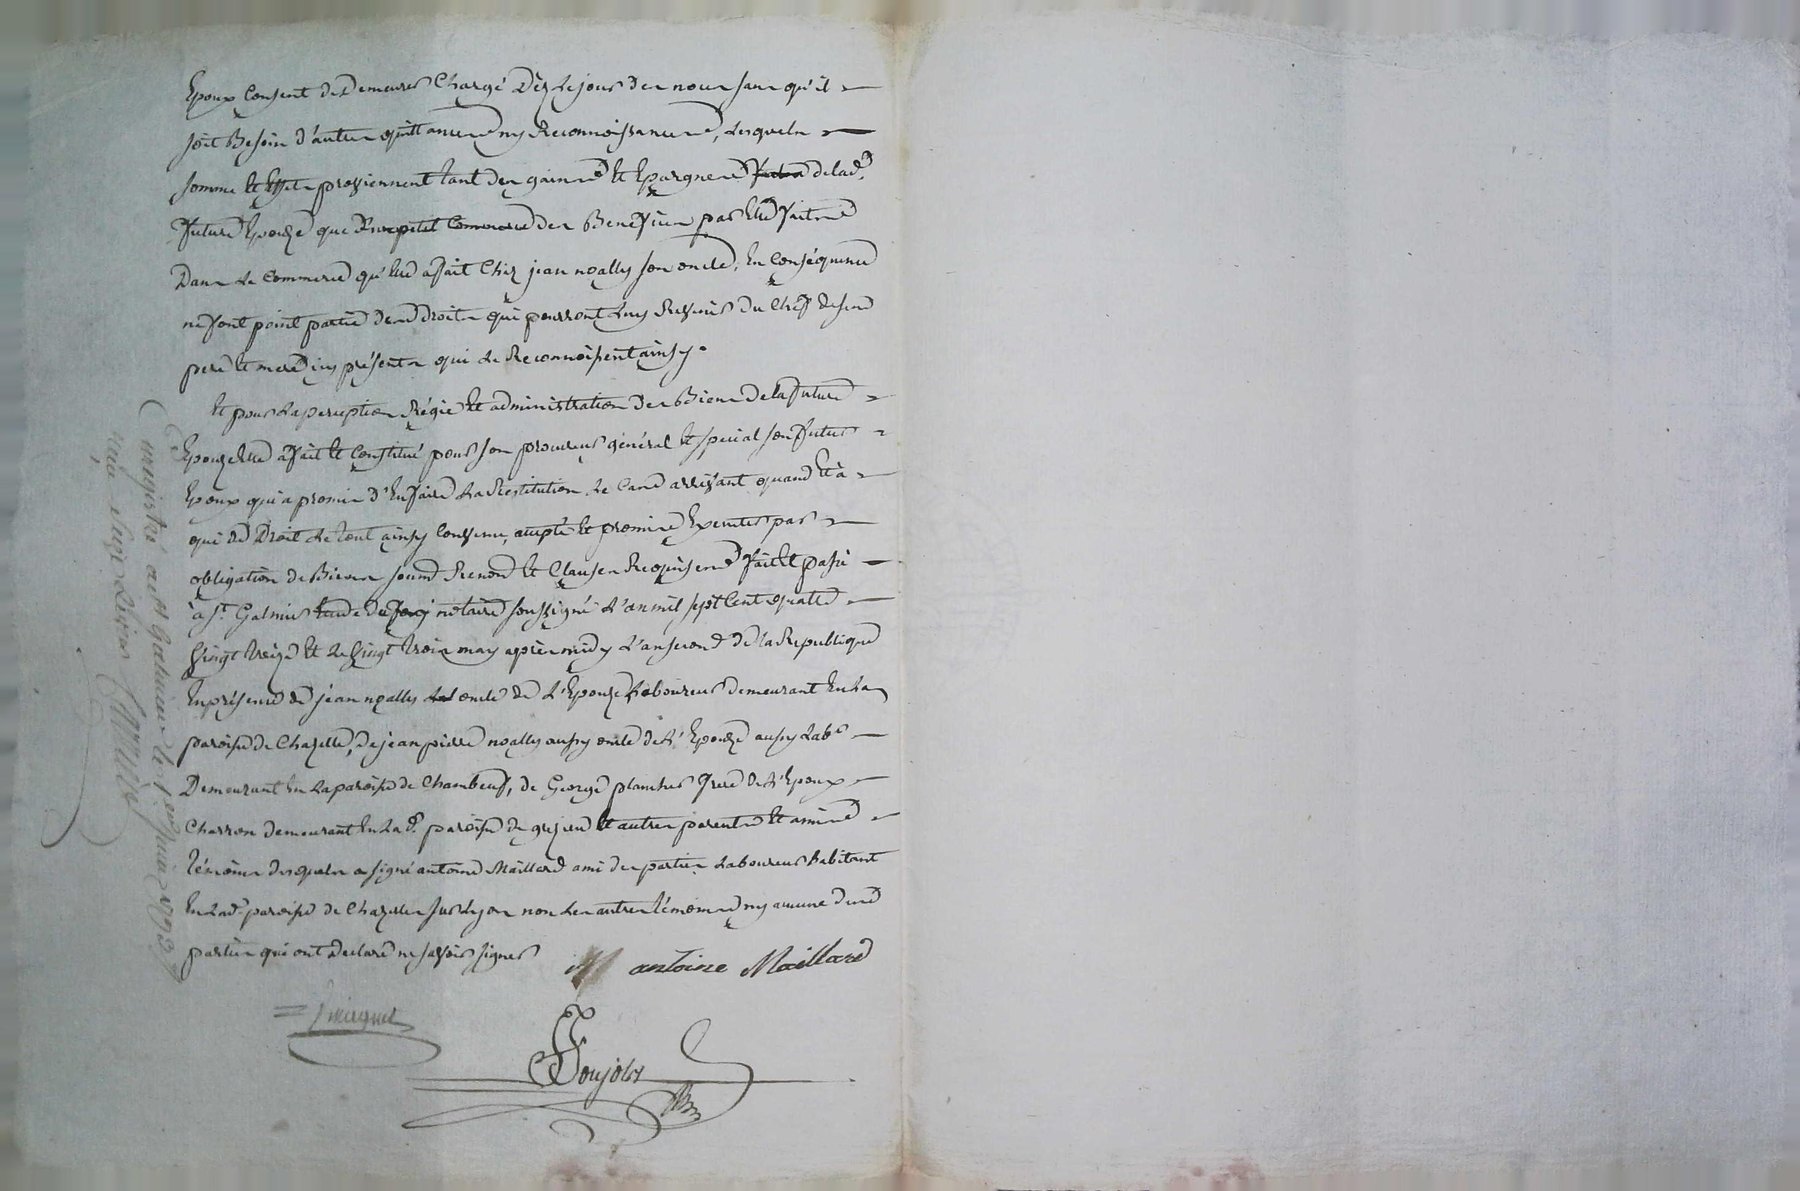 Epoux Consent de Demeurer Chargé Dez le jour des noces sans qu'il
soit Besoin d'autre quittance ny Reconnoissance, lesquels
somme et Effets proviennent tant des gaines et Epargnes de lad.
future Epouze que des Benefices par Elle faits
Dans le Commerce qu'elle a fait Chez jean noally son oncle, En Conséquence
ne font point partie des droits qui pourront luy Revenir du Chef de ses
pere et mere icy présents qui le Reconnoissent ainsy.
Et pour la perception Régie et administration des Biens de la future
Epouze Elle a fait et Constitué pour son procureur général et special son futur
Epoux qui a promis d'En faire la Restitution le Cas arrivant quand et à
qui de Droit le tout ainsy Convenu, accepté et promis Executer par
obligation de Biens soumis Renon et Clauses Requises fait et passé
à St Galmier notaire soussigné l'an mil sept Cent quatre
vingt treize et le vingt trois may après midy l'an second de la Republique
En présence de jean noally oncle de l'Epouze laboureur demeurant En la
paroisse de Chazelle, de jean pierre noally aussy oncle de l'Epouze aussy labr
Demeurant En la paroisse de Chambeuf, de George planchet frere de l'Epoux
Charron demeurant En lad. paroisse de et autres parents et amis
témoins desquels a signé antoine Maillard ami des parties laboureur habitant
En lad. paroisse de Chazelles sur Lyon non les autres témoins ny aucune des
parties qui ont declaré ne savoir signer
antoine Maillard
Poujol
Enregistré a St Galmier le 1er juin 1793